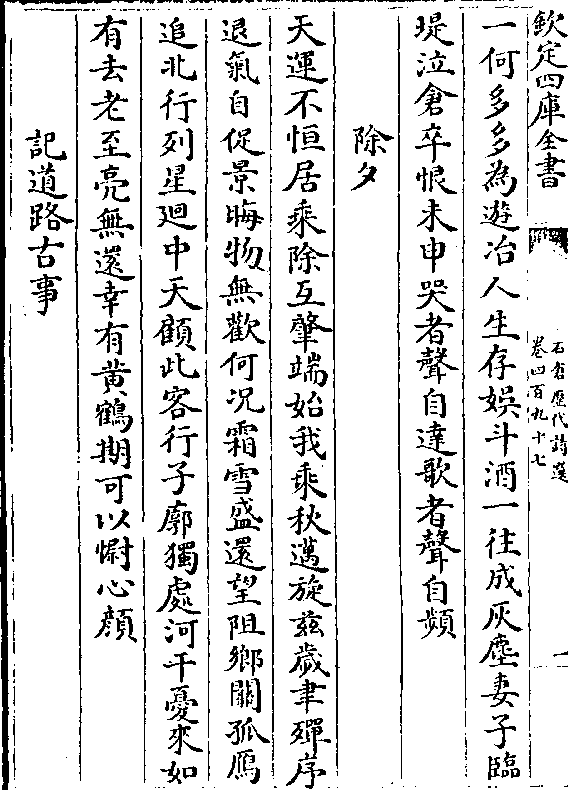 欽定四庫全書
石倉歷代詩選
卷四百九十七
一
一何多多為遊冶人生存娯斗酒一往成灰塵妻子臨
堤泣倉卒恨未申哭者聲自達歌者聲自頻
除夕
天運不恒居乘除互肇端始我乘秋邁旋兹嵗聿殫序
退氣自促景晦物無歡何况霜雪盛還望阻鄉關孤鴈
追北行列星廻中天顧此客行子廓獨處河干憂來如
有去老至亮無還幸有黄鶴期可以慰心顔
記道路古事